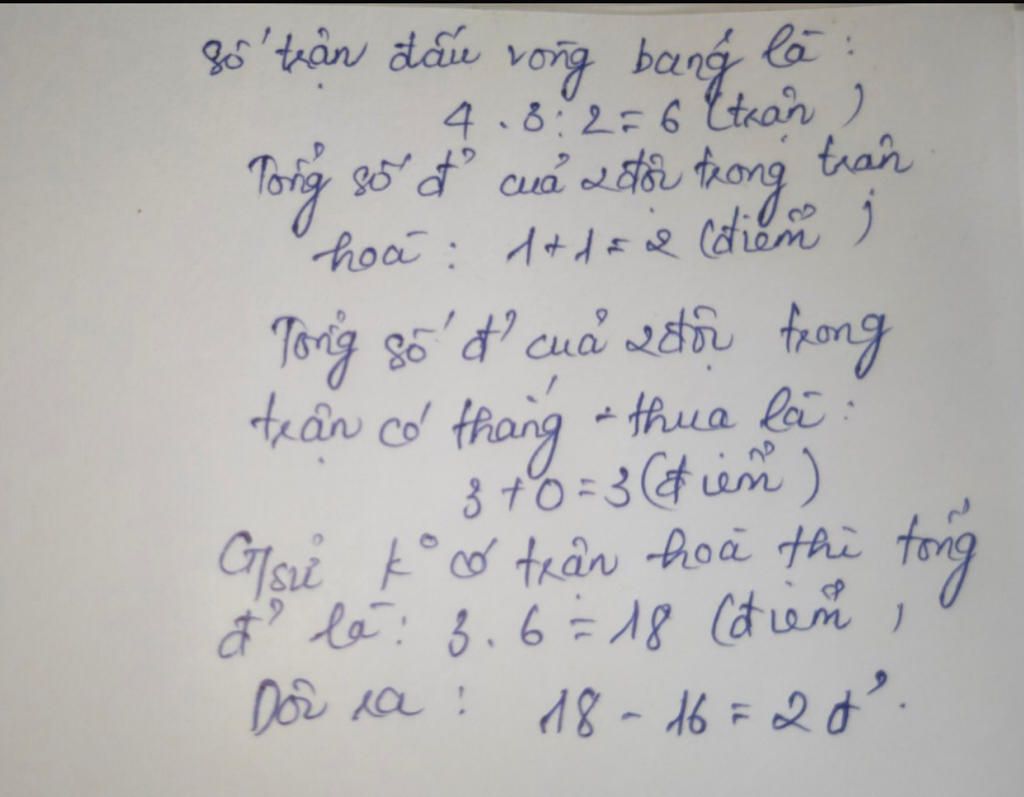 Số trận đấu vòng bảng là :
4 . 3 : 2 = 6 (trận )
Tổng số đ' của 2 đội trong trận
hoà : 1 + 1 = 2 (điểm )
Tổng số đ' của 2 đội trong
trận có thắng - thua là :
3 + 0 = 3 (điểm )
G/sử k° có trận hoà thì tổng
đ' là : 3 . 6 = 18 (điểm )
Dôi ra : 18 - 16 = 2 đ' .